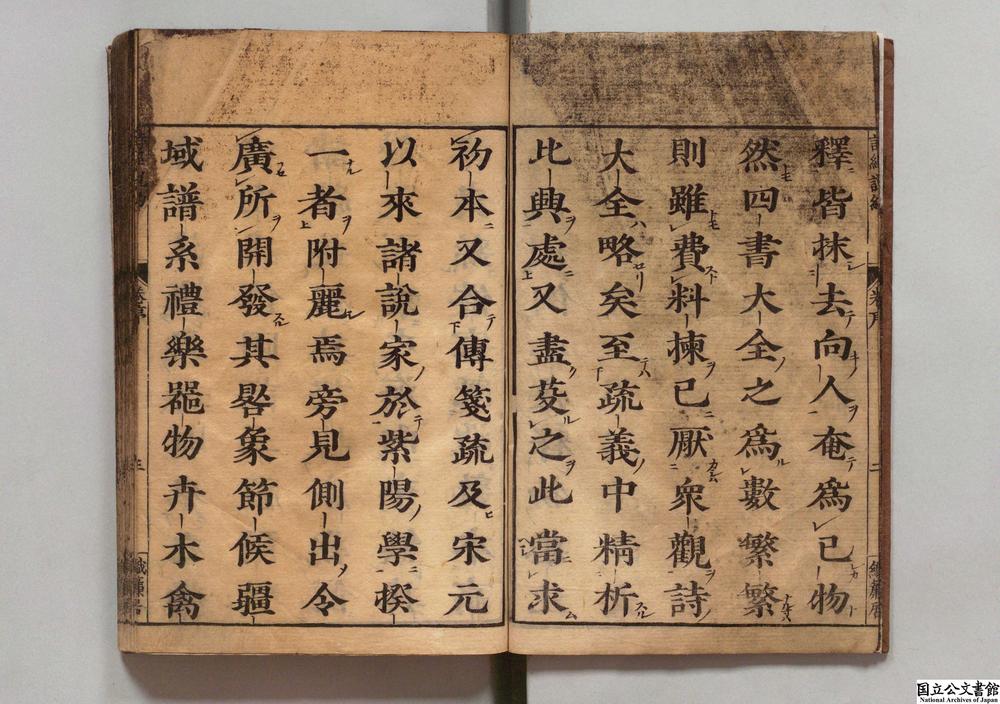 釋皆抹去向人奄爲已物
然四書大全之爲數繁繁
則雖費料揀已厭衆觀詩
大全略矣至疏義中精析
比興處又盡芟之此當求
初本又合傳箋疏及宋元
以來諸說家於紫陽學揆
一者附麗焉旁見側出令
廣所開發其畧象節候疆
域譜系禮樂噐物卉木禽
国立公文書館
National Archives of Japan